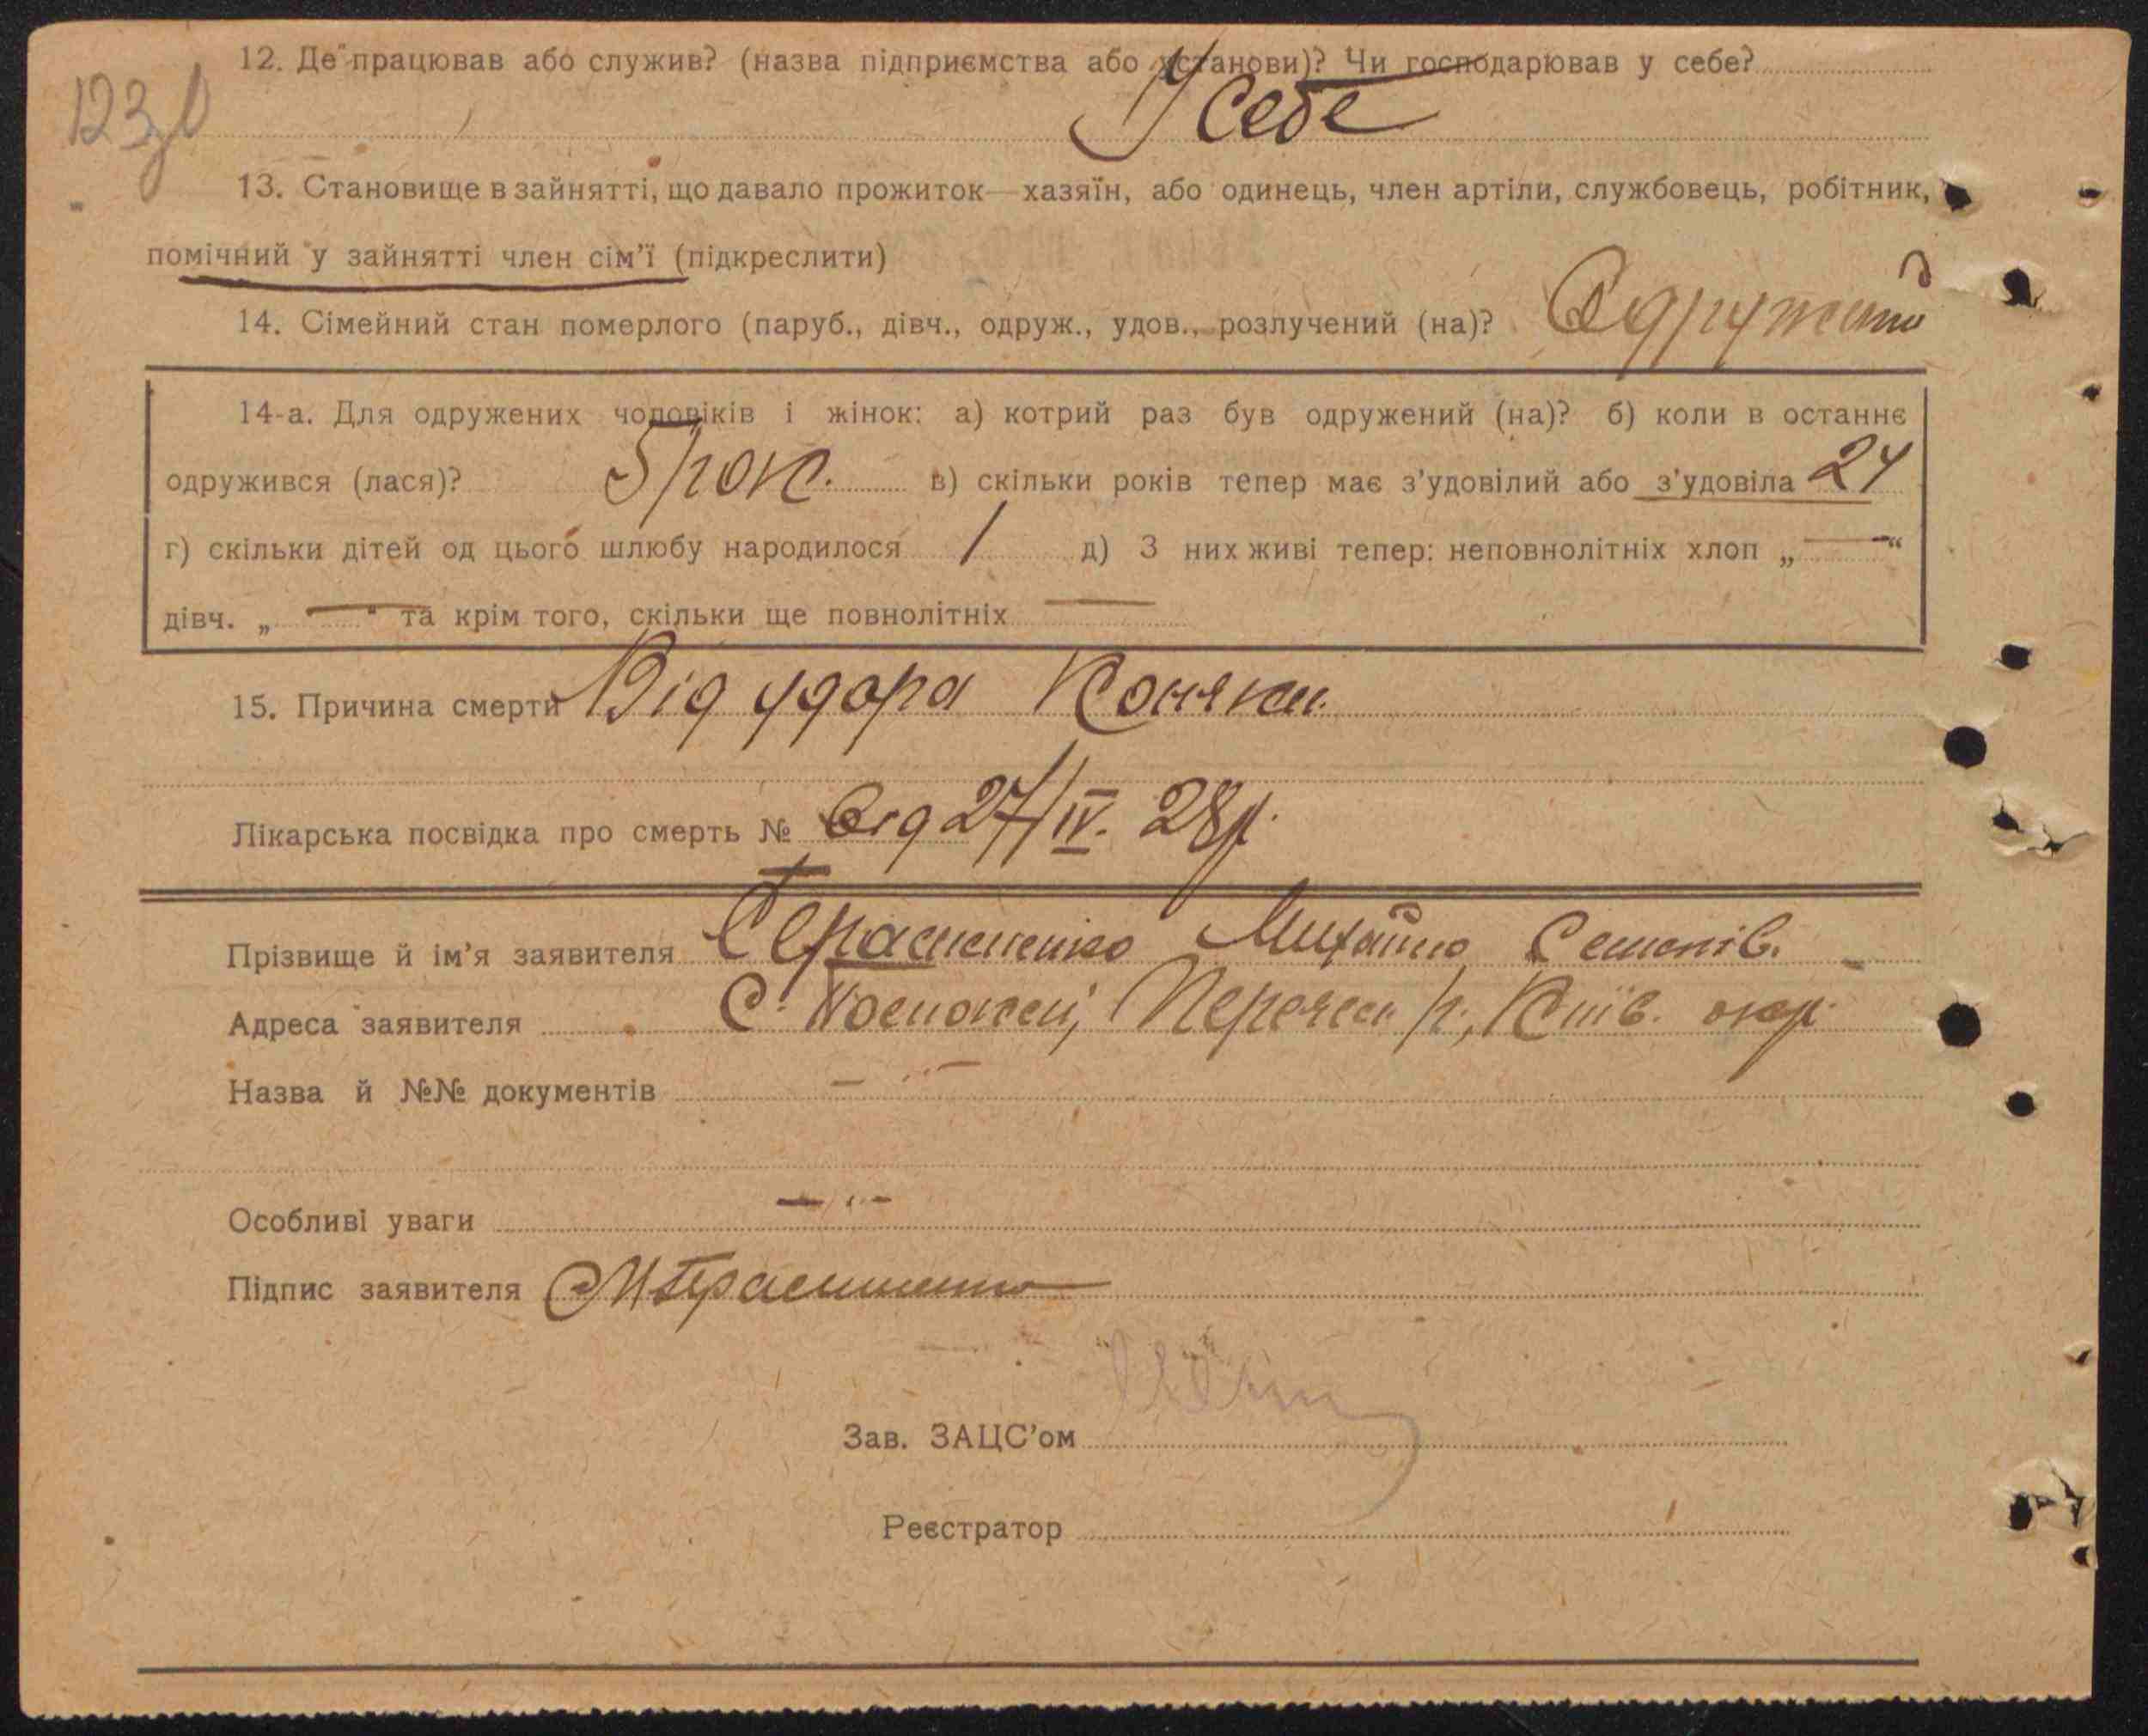 123
12. Де працював або служив? (назва підприємства або установи)? Чи господарював у себе?
У себе
13. Становище в зайнятті, що давало прожиток—хазяїн, або одинець, член артіли, службовець, робітник,
помічний у зайнятті член сім'ї (підкреслити)
14. Сімейний стан померлого (паруб., дівч., одруж., удов., розлучений (на)?
14-а. Для одружених чоловіків і жінок: а) котрий раз був одружений (на)? б) коли в останнє
одружився (лася)? 5 рок. в) скільки років тепер має з'удовілий або з'удовіла 24
г) скільки дітей од цього шлюбу народилося 1 д) З них живі тепер: неповнолітніх хлоп „ — “
дівч. „ — “ та крім того, скільки ще повнолітніх —
15. Причина смерти Від удара Коняки.
Лікарська посвідка про смерть № від 27/IV. 28 р.
Прізвище й ім'я заявителя Герасименко Михайло Семенів.
Адреса заявителя С. Переясл. р., Київ. окр.
Назва й №№ документів — " —
Особливі уваги — " —
Підпис заявителя МГерасименко
Зав. ЗАЦС'ом
Реєстратор